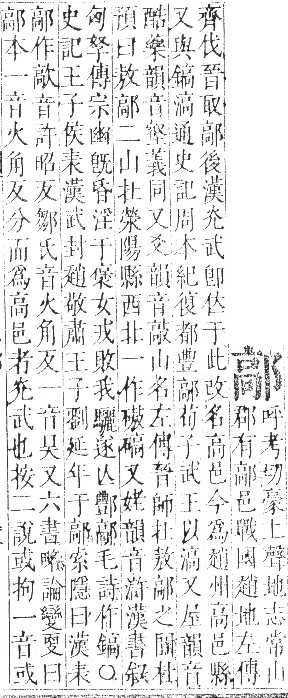 鄗呼考切豪上聲地志常山
郡有鄗邑戰國趙地左傳
齊伐晉取鄗後漢光武卽位于此改名高邑今爲趙州高邑縣
又與鎬滈通史記周本紀復都豐鄗荀子武王以滈又屋韻音
酷藥韻音壑義同又爻韻音敲山名左傳晉師在敖鄗之間杜
預曰敖鄗二山在滎陽縣西北一作磝碻又姥韻音滸漢書叙
匈奴傳宗幽旣昏淫于褒女戎敗我驪遂亡酆鄗毛詩作鎬○
史記王子侯表漢武封趙敬肅王子劉延年于鄗索隱曰漢表
鄗作歊音許昭反鄒氏音火角反一音昊又六書略論變更曰
鄗本一音火角反分而爲高邑者光武也按二說或拘一音或